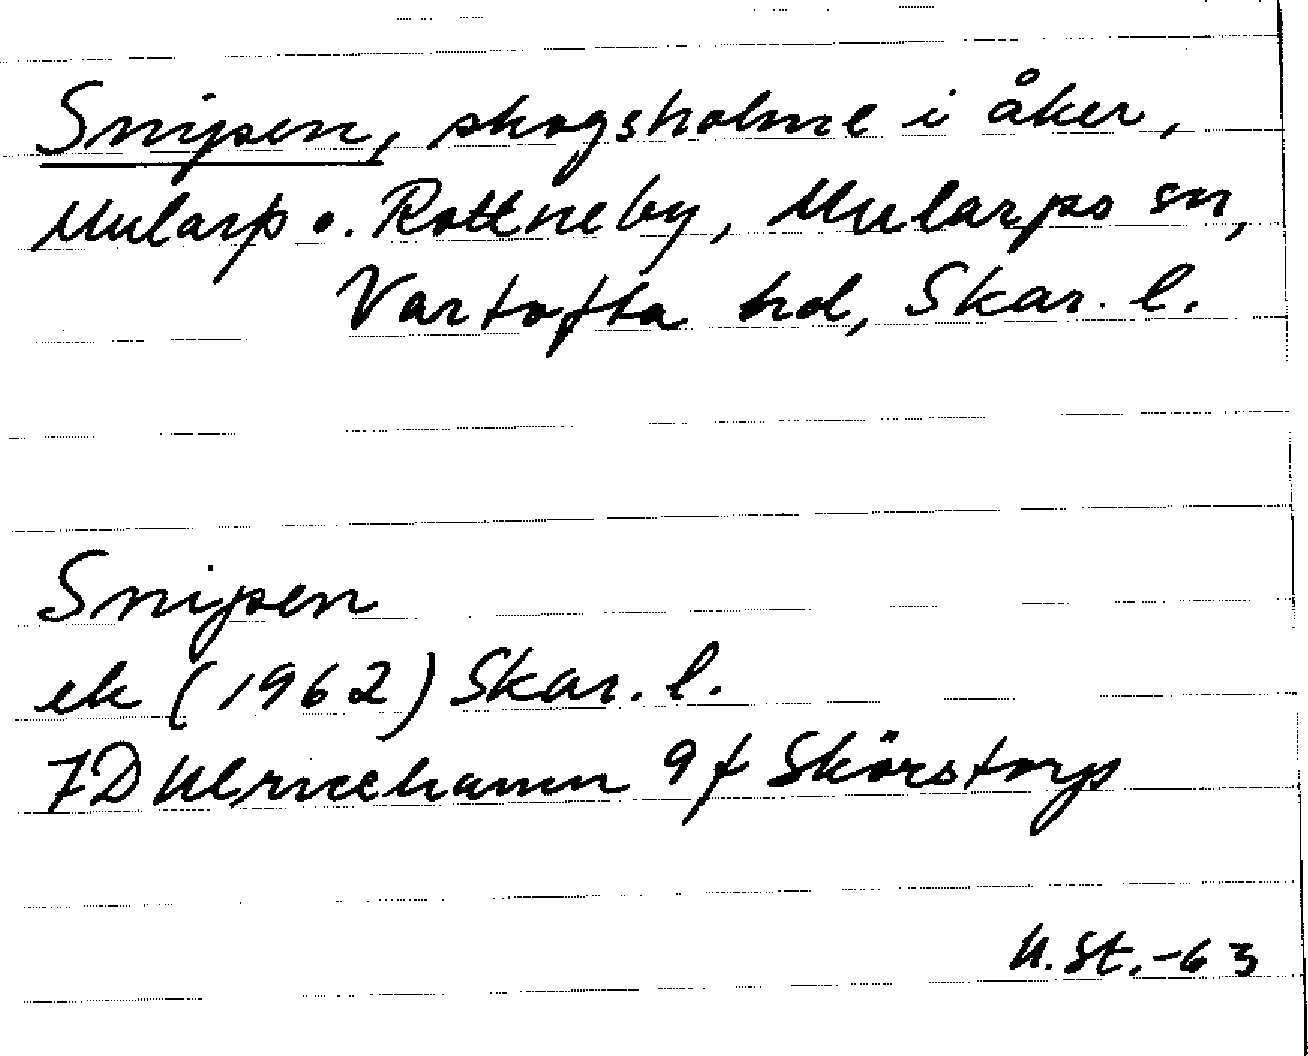 Snipen, skogsholme i åker,
Mularp o. Rottneby, Mularps sn,
Vartofta hd, Skar. l.
Snipen
ek (1962) Skar. l.
7D Ulricehamn 9f Skörstorp
U. St. -63